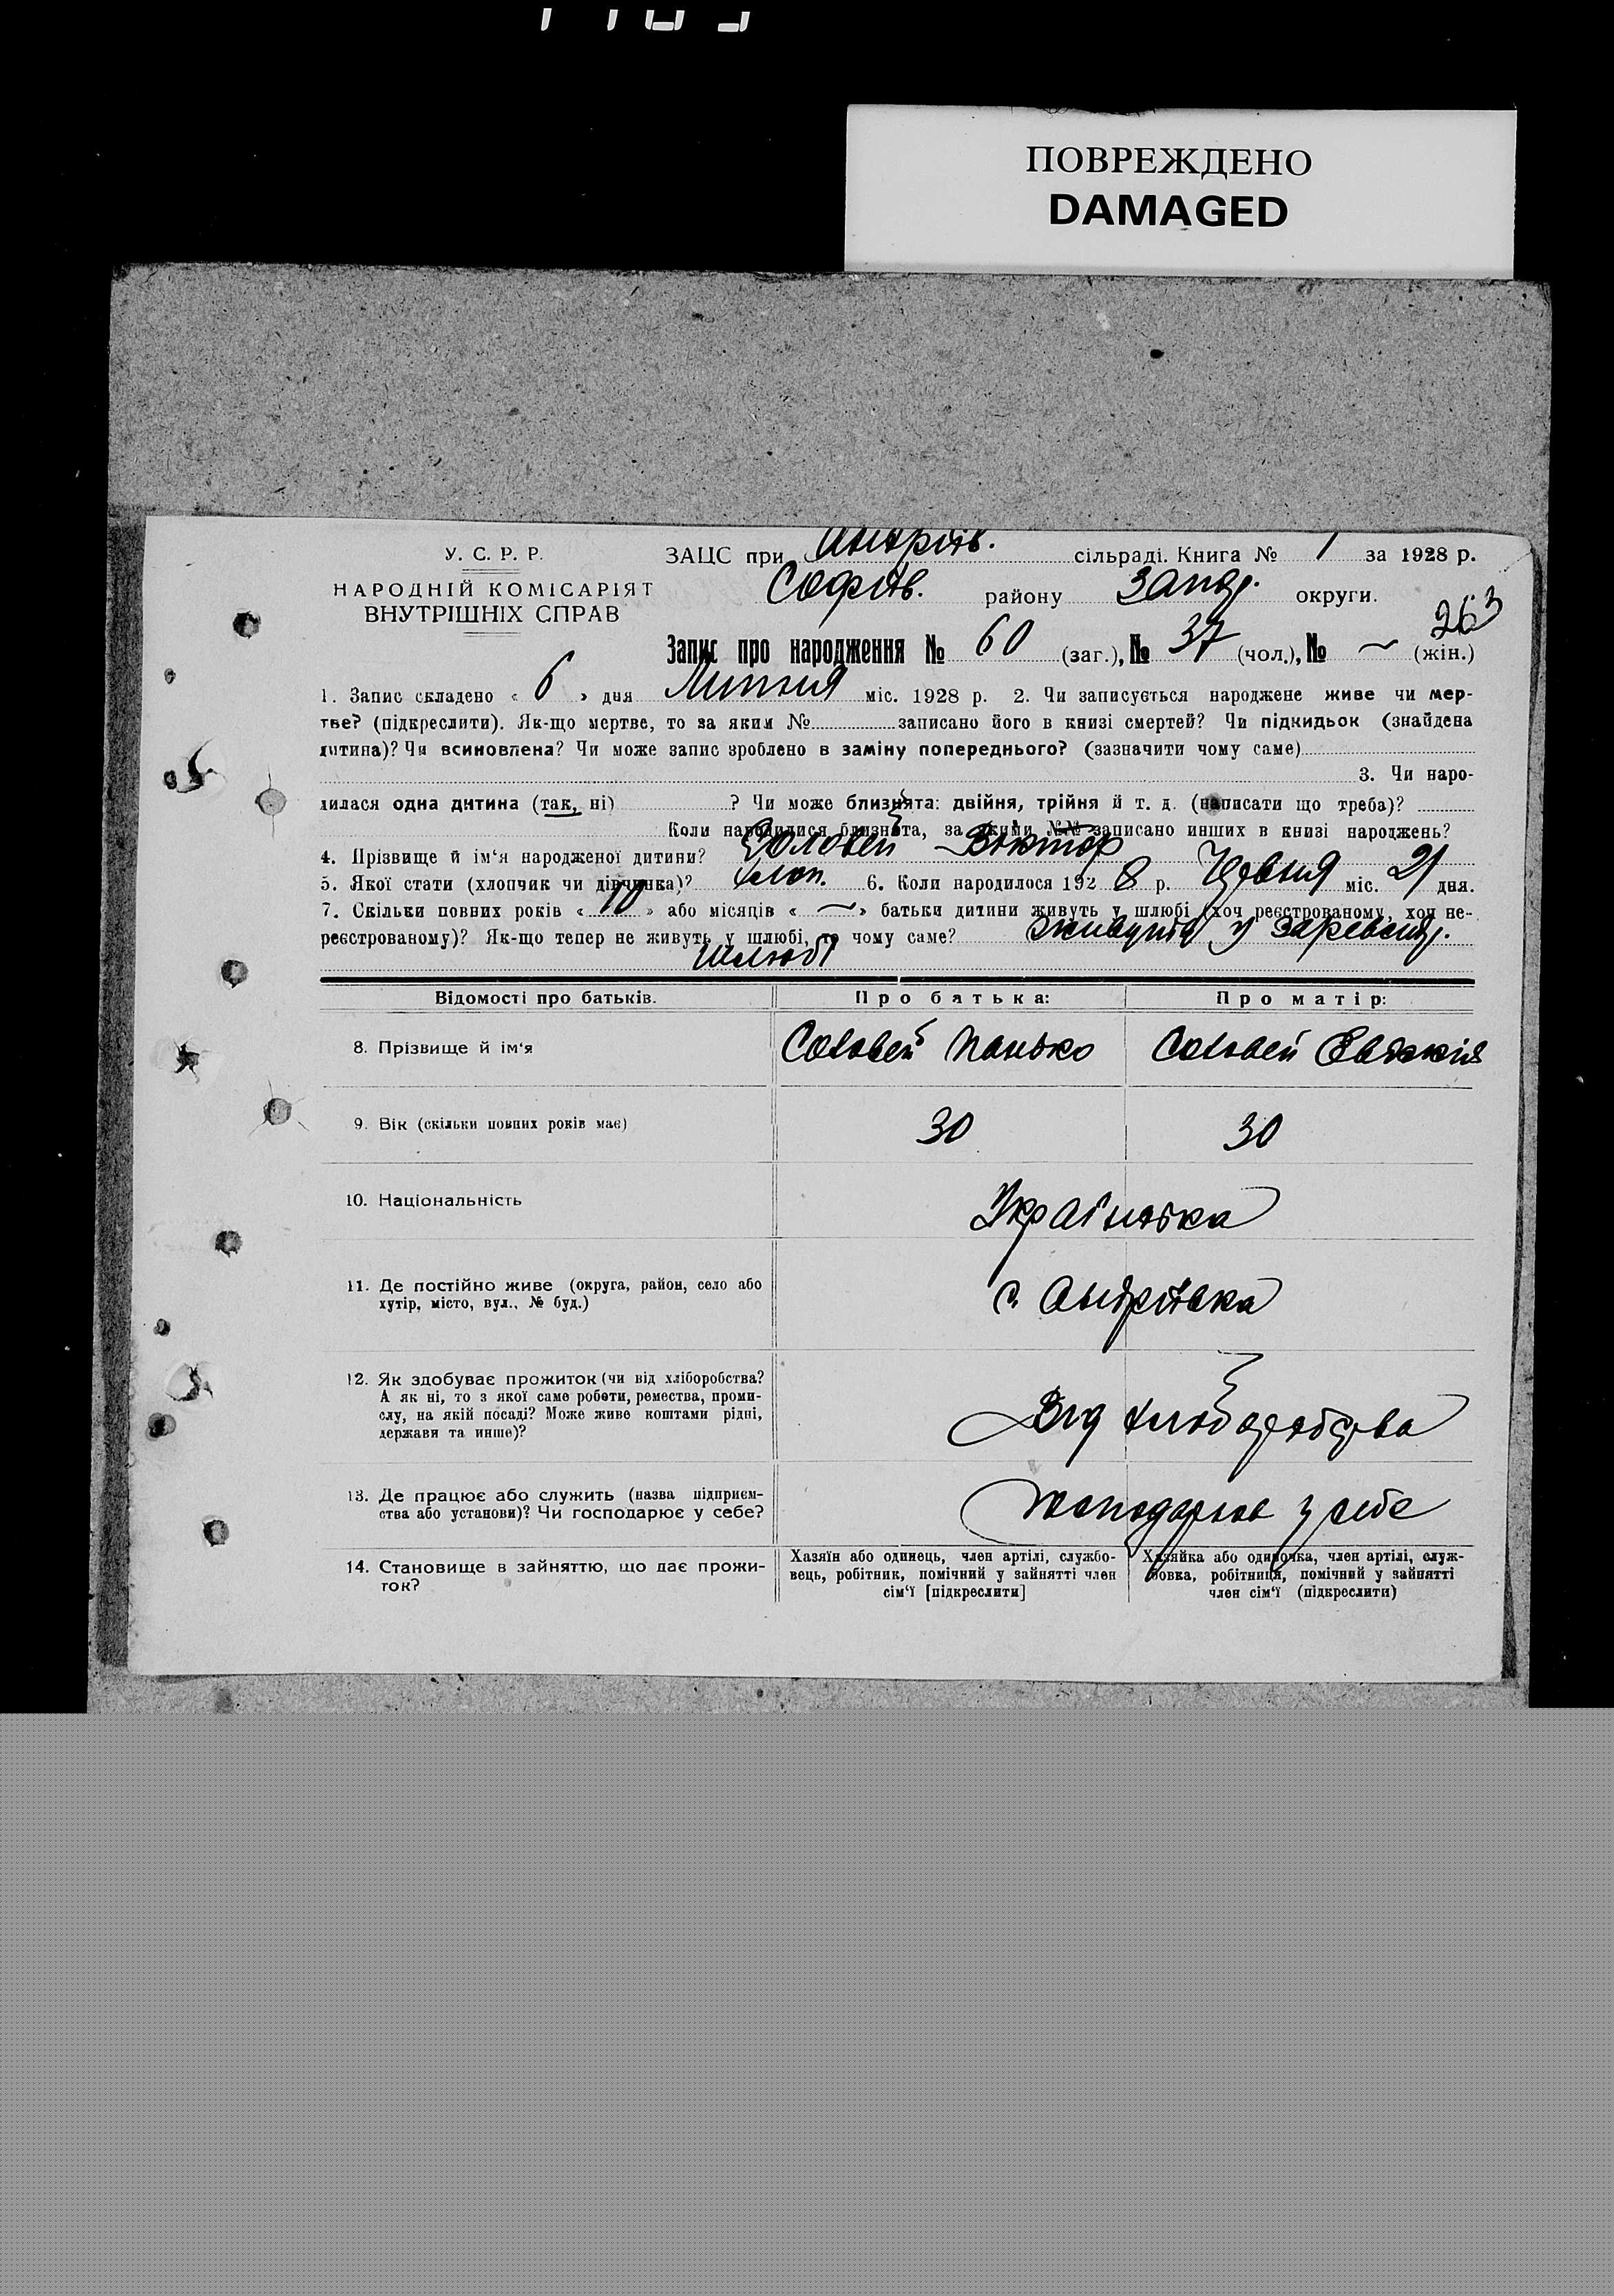 ПОВРЕЖДЕНО
DAMAGED
У. С. Р. Р.
НАРОДНІЙ КОМІСАРІЯТ
ВНУТРІШНІХ СПРАВ
ЗАЦС при Андріїв. сільраді. Книга № 1 за 1928 р.
Софіїв. району Запор. округи.
263
Запис про народження № 60 (заг.), № 37 (чол.), № — (жін.)
1. Запис складено « 6 » дня Липня міс. 1928 р. 2. Чи записується народжене живе чи мер-
тве? (підкреслити). Як-що мертве, то за яким № записано його в книзі смертей? Чи підкидьок (знайдена
дитина)? Чи всиновлена? Чи може запис зроблено в заміну попереднього? (зазначити чому саме)
3. Чи наро-
дилася одна дитина (так, ні) ? Чи може близнята: двійня, трійня й т. д. (написати що треба)?
Коли народилися близнята, за якими №№ записано инших в книзі народжень?
4. Прізвище й ім‘я народженої дитини? Соловей Віктор
5. Якої стати (хлопчик чи дівчинка)? хлоп. 6. Коли народилося 1928 р. Червня міс. 21 дня.
7. Скільки повних років « 10 » або місяців « — » батьки дитини живуть у шлюбі (хоч реєстрованому, хоч не-
реєстрованому)? Як-що тепер не живуть у шлюбі, то чому саме? живуть у
шлюбі
Відомості про батьків. Про батька: Про матір:
8. Прізвище й ім‘я Соловей Панько Соловей
9. Вік (скільки повних років має) 30 30
10. Національність Українська
11. Де постійно живе (округа, район, село або
хутір, місто, вул., № буд.) с. Андріївка
12. Як здобуває прожиток (чи від хліборобства?
А як ні, то з якої саме роботи, ремества, проми-
слу, на якій посаді? Може живе коштами рідні,
держави та инше)? Від хліборобства
13. Де працює або служить (назва підприєм-
ства або установи)? Чи господарює у себе? господарює у себе
14. Становище в зайняттю, що дає прожи-
ток?
Хазяїн або одинець, член артілі, службо-
вець, робітник, помічний у зайнятті член
сім‘ї [підкреслити]
Хазяйка або одиночка, член артілі, служ-
бовка, робітниця, помічний у зайнятті
член сім‘ї (підкреслити)